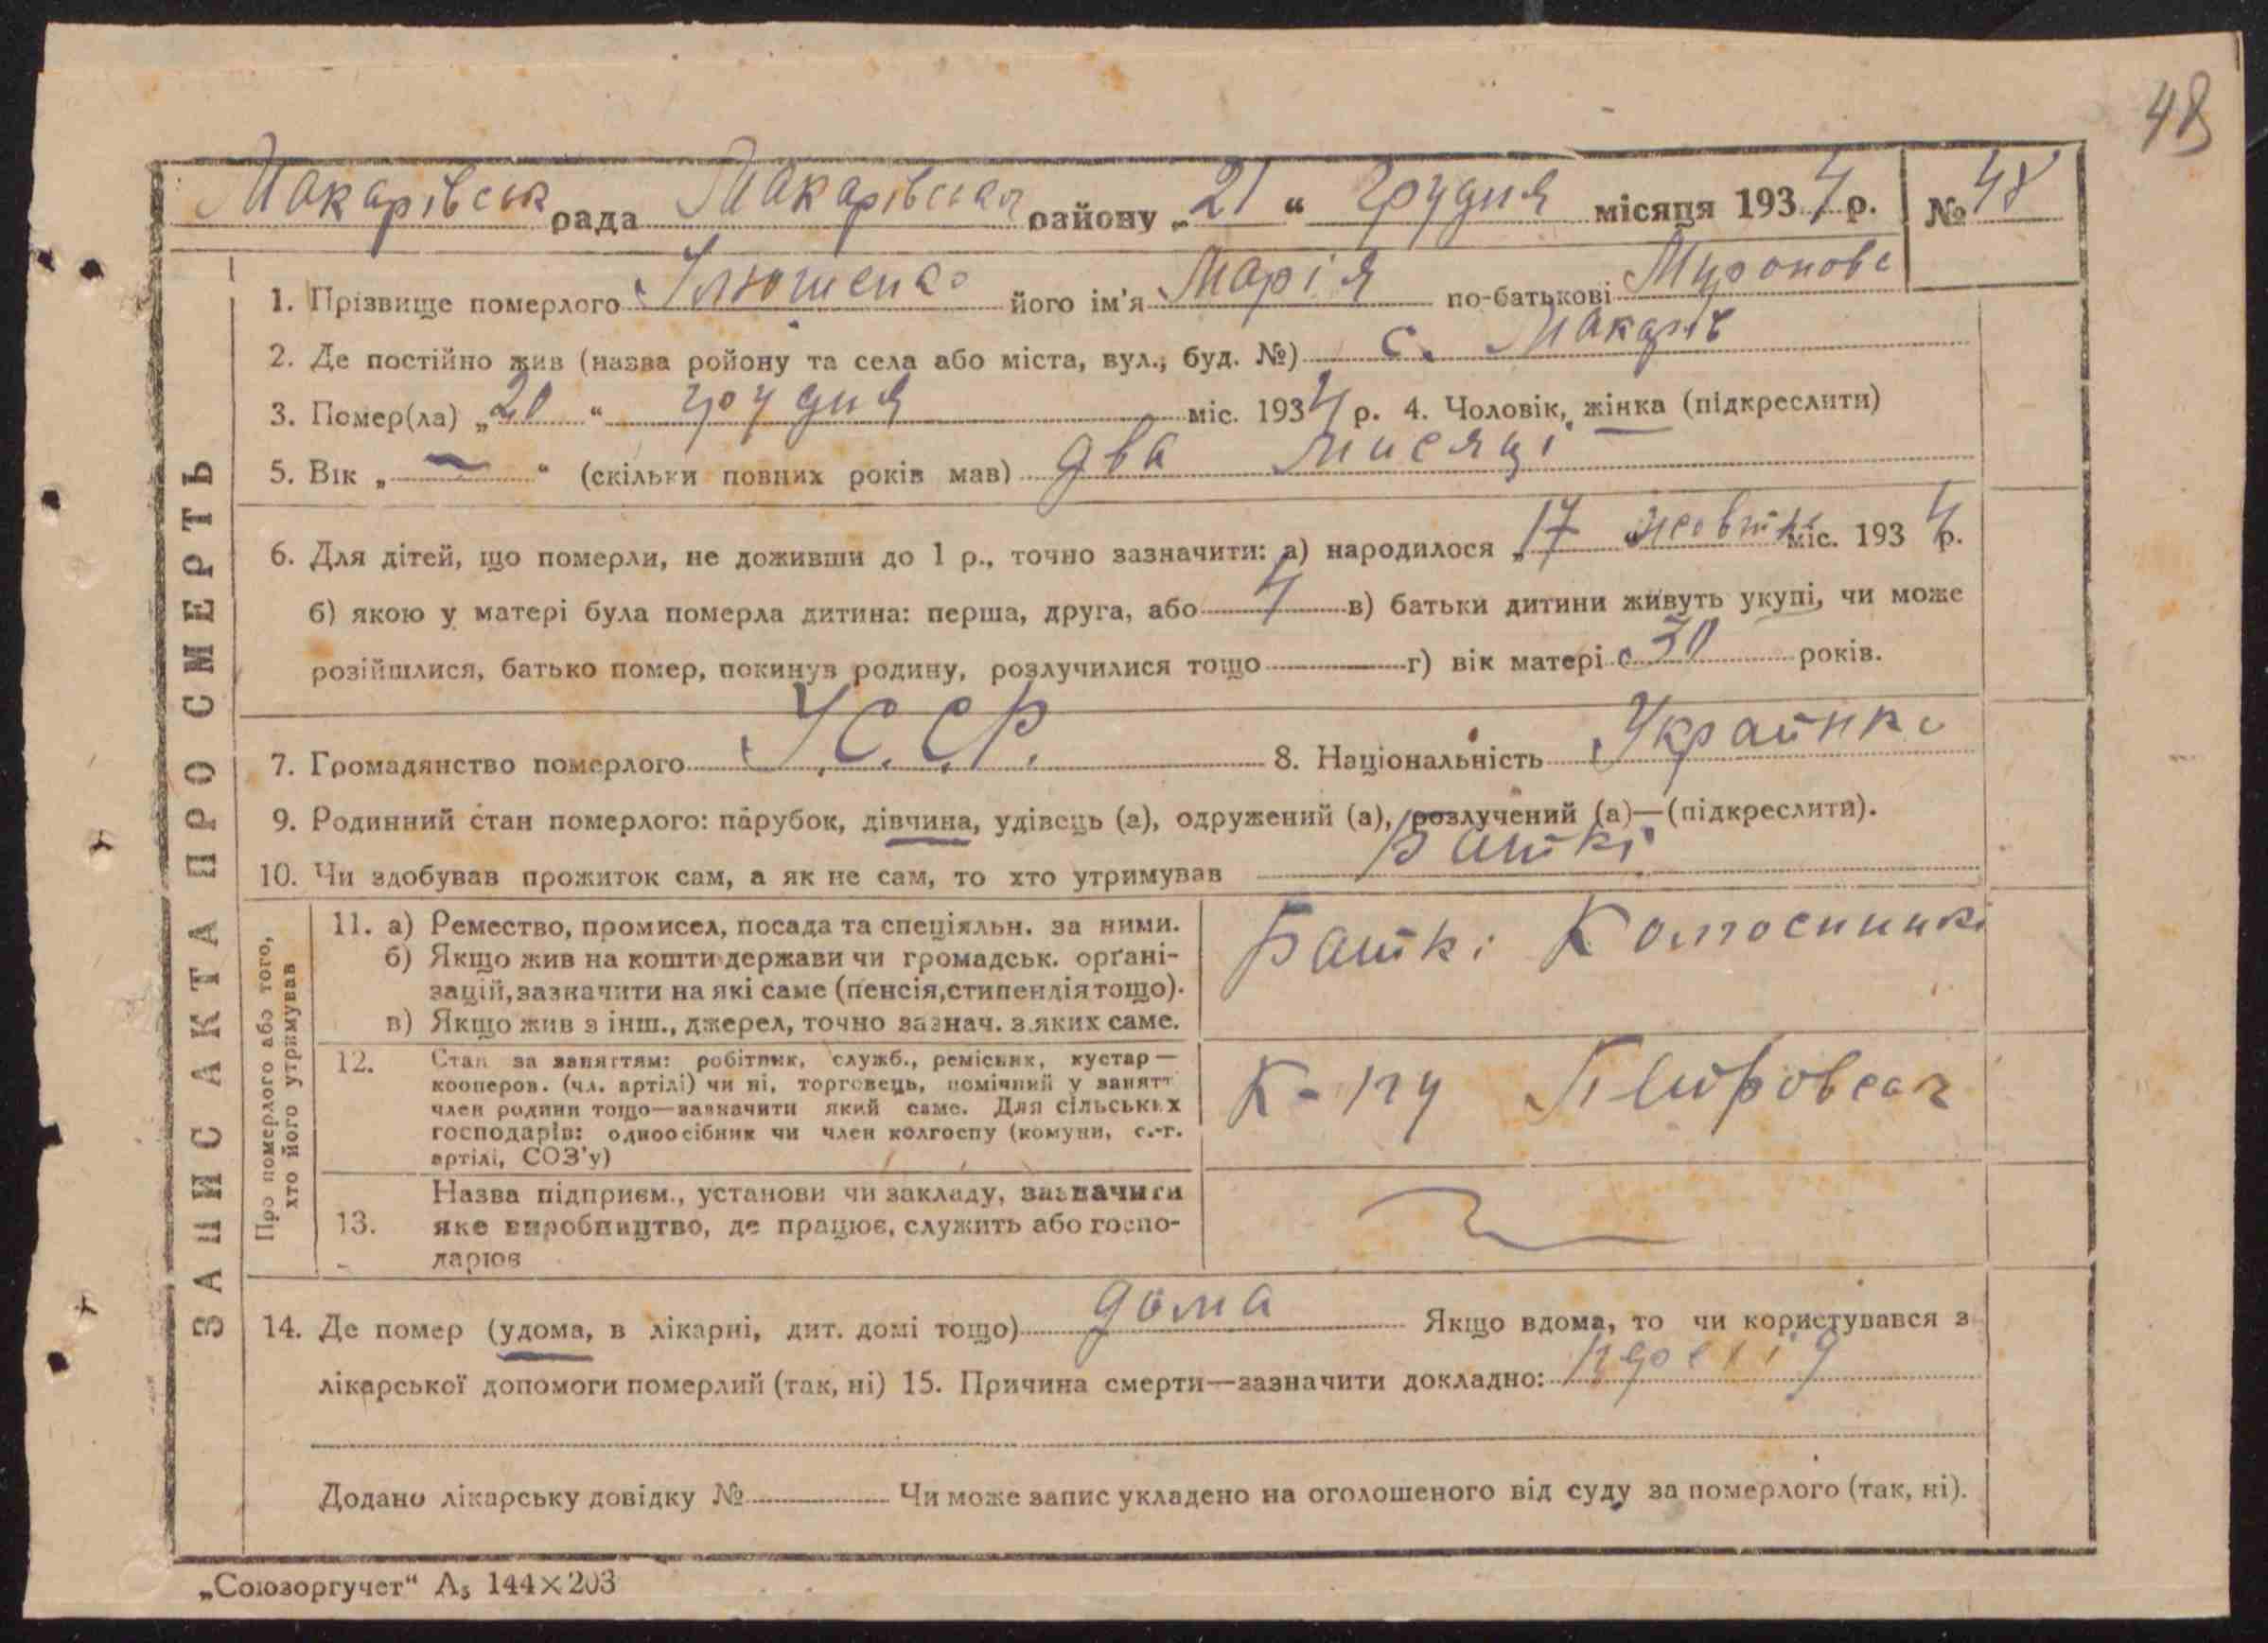 48
Макарівськ рада Макарівская району „21“ грудня місяця 1934 р. № 48
1. Прізвище померлого Ілюшенко його ім'я Марія по-батькові Миронов
2. Де постійно жив (назва ройону та села або міста, вул., буд. №) с. Макарів
3. Помер(ла) „20“ грудня міс. 1934 р. 4. Чоловік, жінка (підкреслити)
5. Вік „—“ (скільки повних років мав) два мисяці
6. Для дітей, що померли, не доживши до 1 р., точно зазначити: а) народилося „17 жовтня міс. 1934 р.
б) якою у матері була померла дитина: перша, друга, або 4 в) батьки дитини живуть укупі, чи може
розійшлися, батько помер, покинув родину, розлучилися тощо г) вік матері 30 років.
7. Громадянство померлого У.С.С.Р. 8. Національність Украйнка
9. Родинний стан померлого: парубок, дівчина, удівець (а), одружений (а), розлучений (а)—(підкреслити).
10. Чи здобував прожиток сам, а як не сам, то хто утримував Батькі
ЗАПИС АКТА ПРО СМЕРТЬ
Про померлого або того, хто його утримував
11. а) Ремество, промисел, посада та спеціяльн. за ними.
б) Якщо жив на кошти держави чи громадськ. орґані-
зацій, зазначити на які саме (пенсія, стипендія тощо).
в) Якщо жив з інш., джерел, точно зазнач. з яких саме.
Батькі
12. Стан за заняттям: робітник, служб., ремісник, кустар—
кооперов. (чл. артілі) чи ні, торговець, помічний у занятт
член родини тощо—зазначити який саме. Для сільських
господарів: одноосібник чи член колгоспу (комуни, с.-г.
артілі, СОЗ'у)
Петровская
13. Назва підприєм., установи чи закладу, зазначити
яке виробництво, де працює, служить або госпо-
дарює
14. Де помер (удома, в лікарні, дит. домі тощо) дома Якщо вдома, то чи користувався з
лікарської допомоги померлий (так, ні) 15. Причина смерти—зазначити докладно:
Додано лікарську довідку № Чи може запис укладено на оголошеного від суду за померлого (так, ні).
„Союзоргучет“ А₅ 144×203